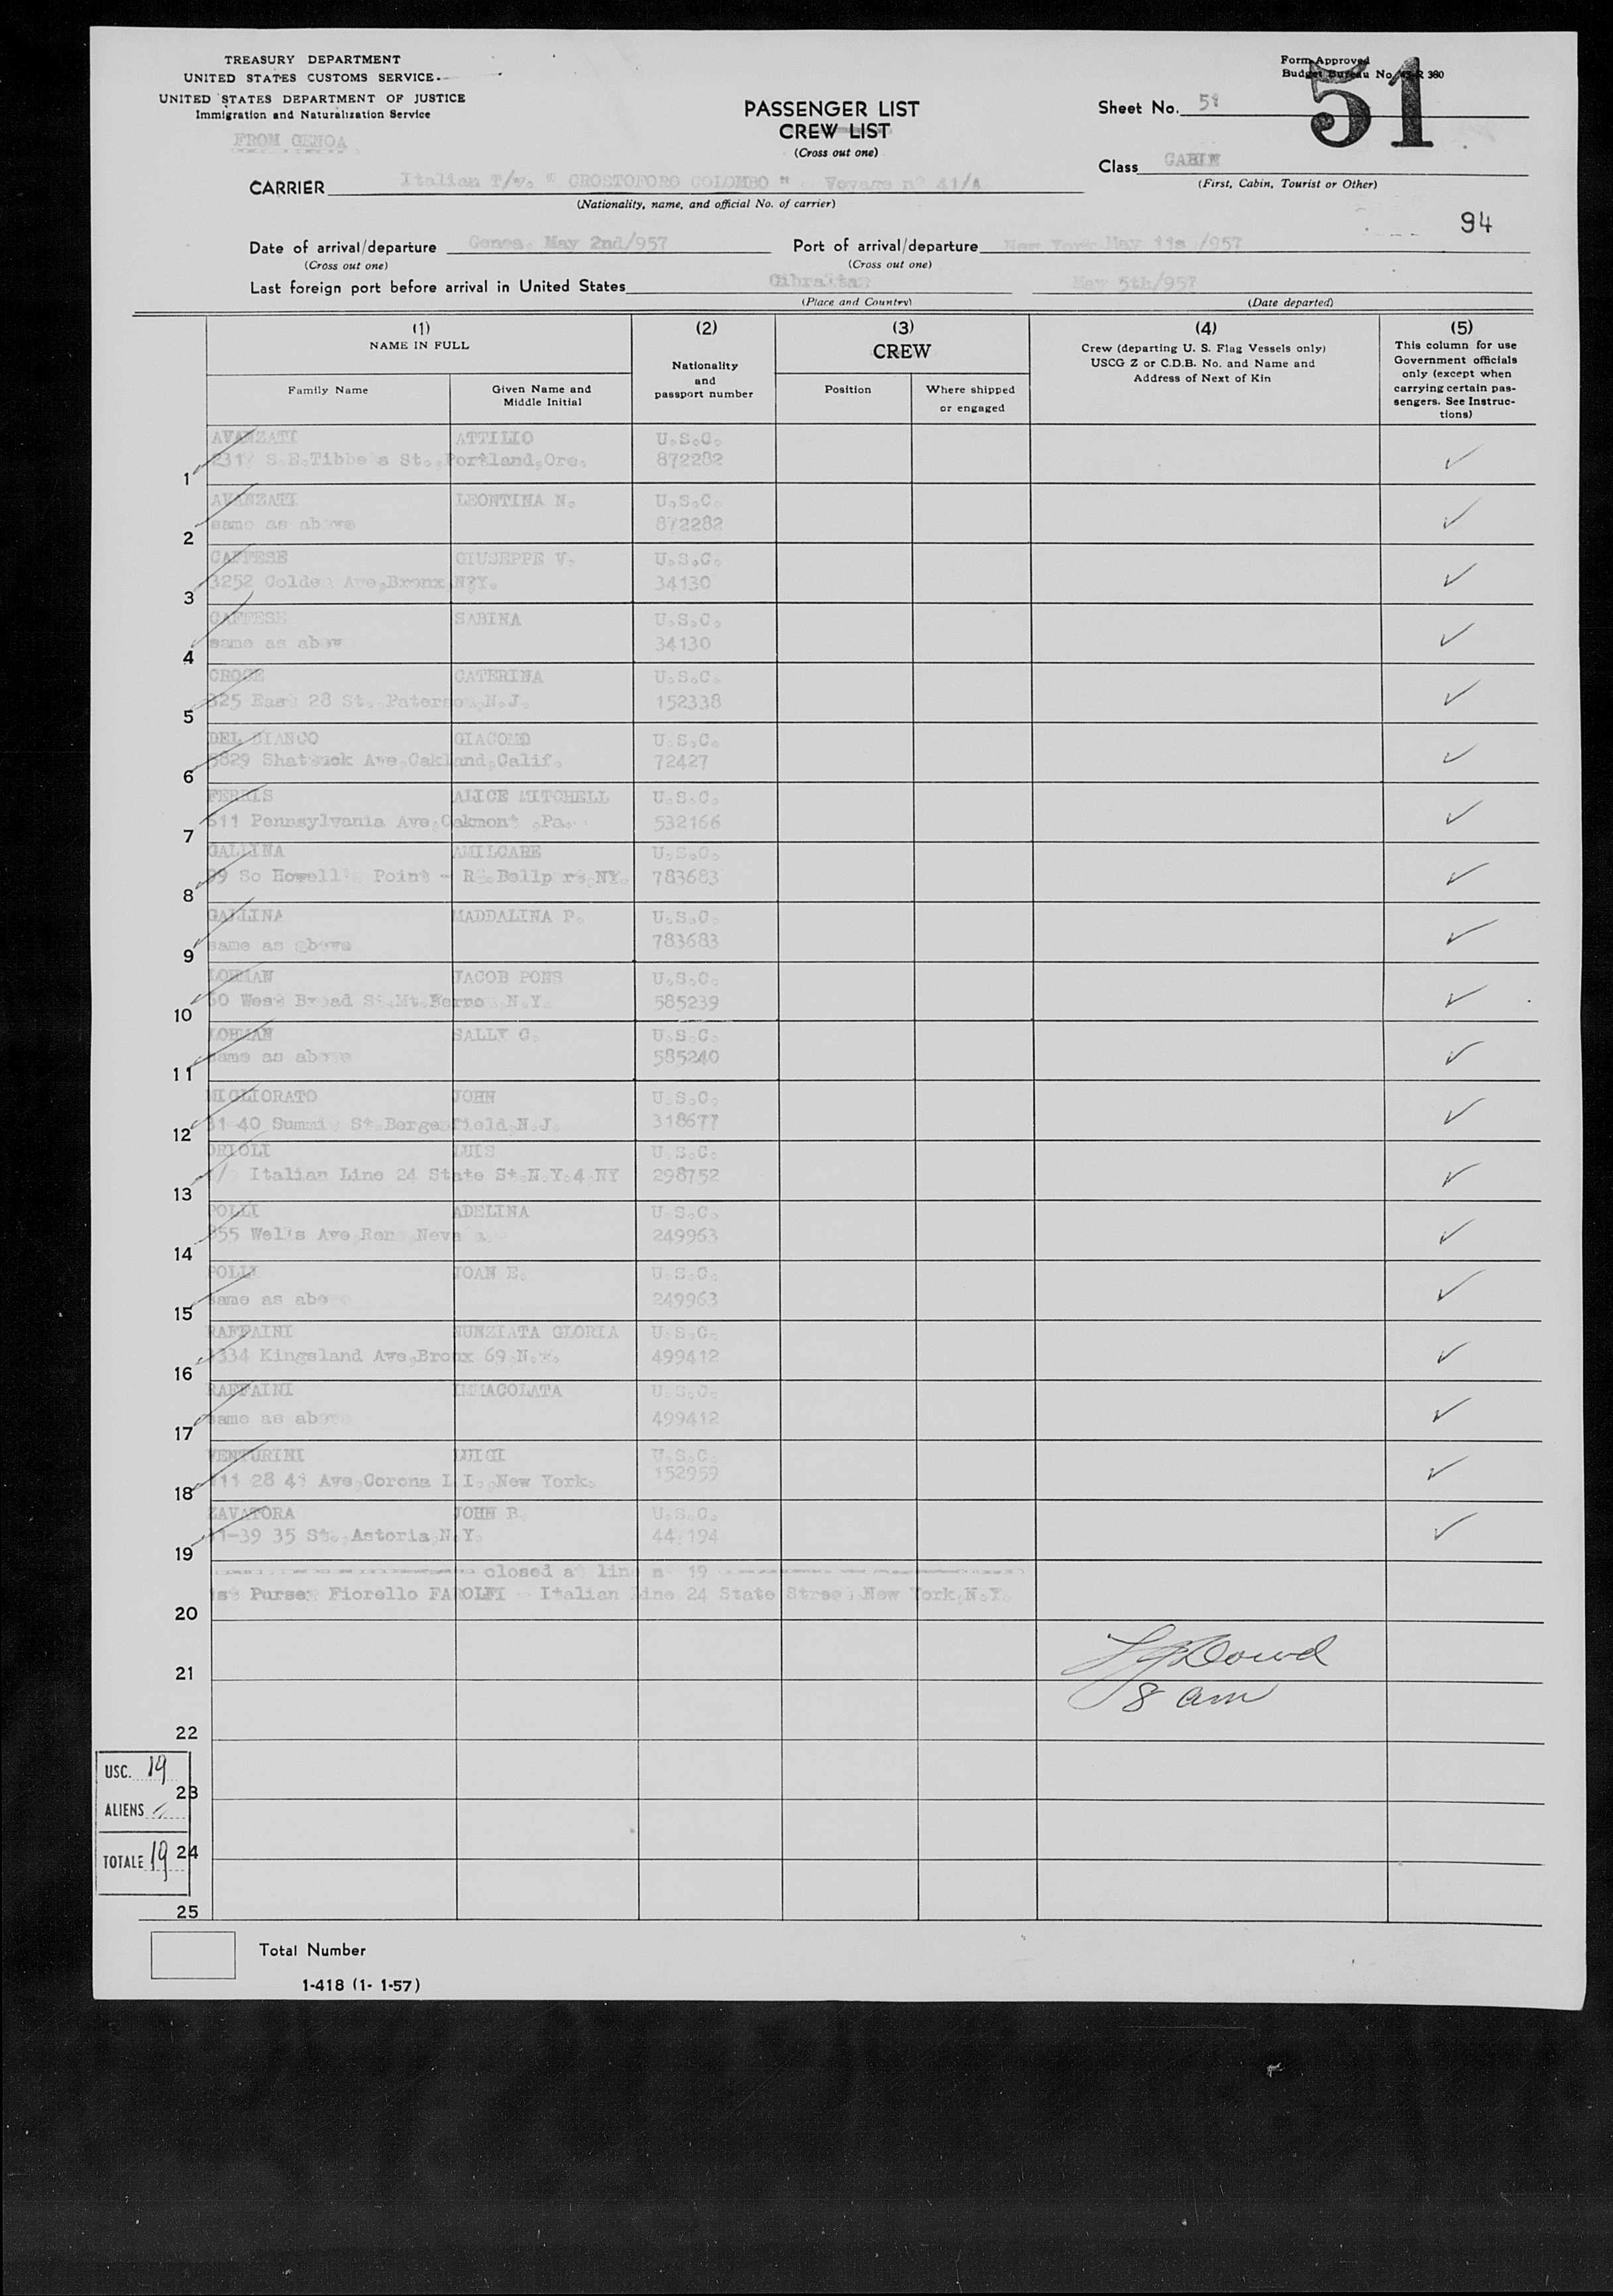 TREASURY DEPARTMENT
UNITED STATES CUSTOMS SERVICE
UNITED STATES DEPARTMENT OF JUSTICE
Immigration and Naturalization Service
FROM GENOA
PASSENGER LIST
CREW LIST
(Cross out one)
Form Approved
Budget Bureau No. 380
Sheet No. 51
51
Class CABIN
(First, Cabin, Tourist or Other)
CARRIER Italian T/v. " CROSTOFORO COLOMBO " Voyage n° 41/A
(Nationality, name, and official No. of carrier)
94
Date of arrival/departure Genoa, May 2nd/957 Port of arrival/departure New York May 11s /957
(Cross out one) (Cross out one)
Last foreign port before arrival in United States Gibraltar May 5th/957
(Place and Country) (Date departed)
(1) NAME IN FULL
Family Name
Given Name and Middle Initial
(2)
Nationality and passport number
(3)
CREW
Position
Where shipped or engaged
(4)
Crew (departing U. S. Flag Vessels only)
USCG Z or C.D.B. No. and Name and
Address of Next of Kin
(5)
This column for use
Government officials
only (except when
carrying certain pas-
sengers. See Instruc-
tions)
1 AVANZATI ATTILIO U.S.C.
S.E. St. Portland,Ore. 872282
2 AVANZATI LEONTINA N. U.S.C.
same as above 872282
3 GIUSEPPE V. U.S.C.
3252 Colden Ave,Bronx,N?Y. 34130
4 SABINA U.S.C.
same as above 34130
5 CROCE CATERINA U.S.C.
325 East 28 St. Paterson,N.J. 152338
6 DEL BIANCO GIACOMO U.S.C.
5829 Shattuck Ave,Oakland,Calif. 72427
7 FERRIS ALICE MITCHELL U.S.C.
611 Pennsylvania Ave,Oakmont ,Pa. 532166
8 GALLINA AMILCARE U.S.C.
99 So Howell's Point - R. NY. 783683
9 GALLINA MADDALINA P. U.S.C.
same as above 783683
10 LOHMAN JACOB PONS U.S.C.
West Broad St.Mt. N.Y. 585239
11 LOHMAN SALLY G. U.S.C.
same as above 585240
12 MIGLIORATO JOHN U.S.C.
31-40 Summit St.Bergenfield,N.J. 318677
13 ORIOLI LUIS U.S.C.
Italian Line 24 State St.N.Y.4 NY 298752
14 POLLI ADELINA U.S.C.
855 Wells Ave,Reno Neva a. 249963
15 POLLI JOAN E. U.S.C.
same as abo 249963
16 RAFFAINI NUNZIATA GLORIA U.S.C.
3334 Kingsland Ave,Bronx 69 N.Y. 499412
17 RAFFAINI IMMACOLATA U.S.C.
same as above 499412
18 VENTURINI LUIGI U.S.C.
111 28 41 Ave,Corona L.I.,New York. 152959
19 ZAVATORA JOHN B. U.S.C.
-39 35 St.,Astoria,N.Y. 44.194
closed at line n 19
Purser Fiorello FAROLFI - Italian Line 24 State Street New York,N.Y.
20
21
Dowd
8 am
22
USC. 19
23
ALIENS
24
TOTALE 19
25
Total Number
1-418 (1- 1-57)